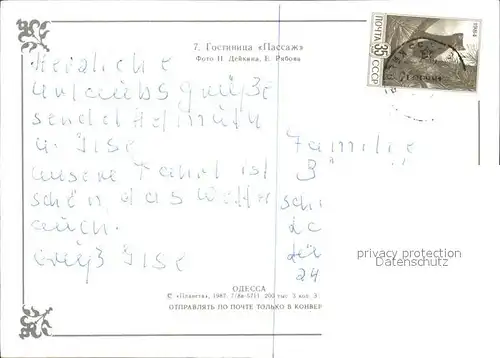 7. Гостиница «Пассаж»
Фото Н. Дейкина, Е. Рябова
1984
ПОЧТА
35
СССР
Herzliche
Urlaubsgrüße
sendet Helmuth
u. Ilse
unsere Fahrt ist
schön, das Wetter
auch.
Gruß Ilse
Familie
B
sch
24
privacy protection
Datenschutz
ОДЕССА
© «Планета», 1987. 200 тыс. 3 коп.
ОТПРАВЛЯТЬ ПО ПОЧТЕ ТОЛЬКО В КОНВЕР